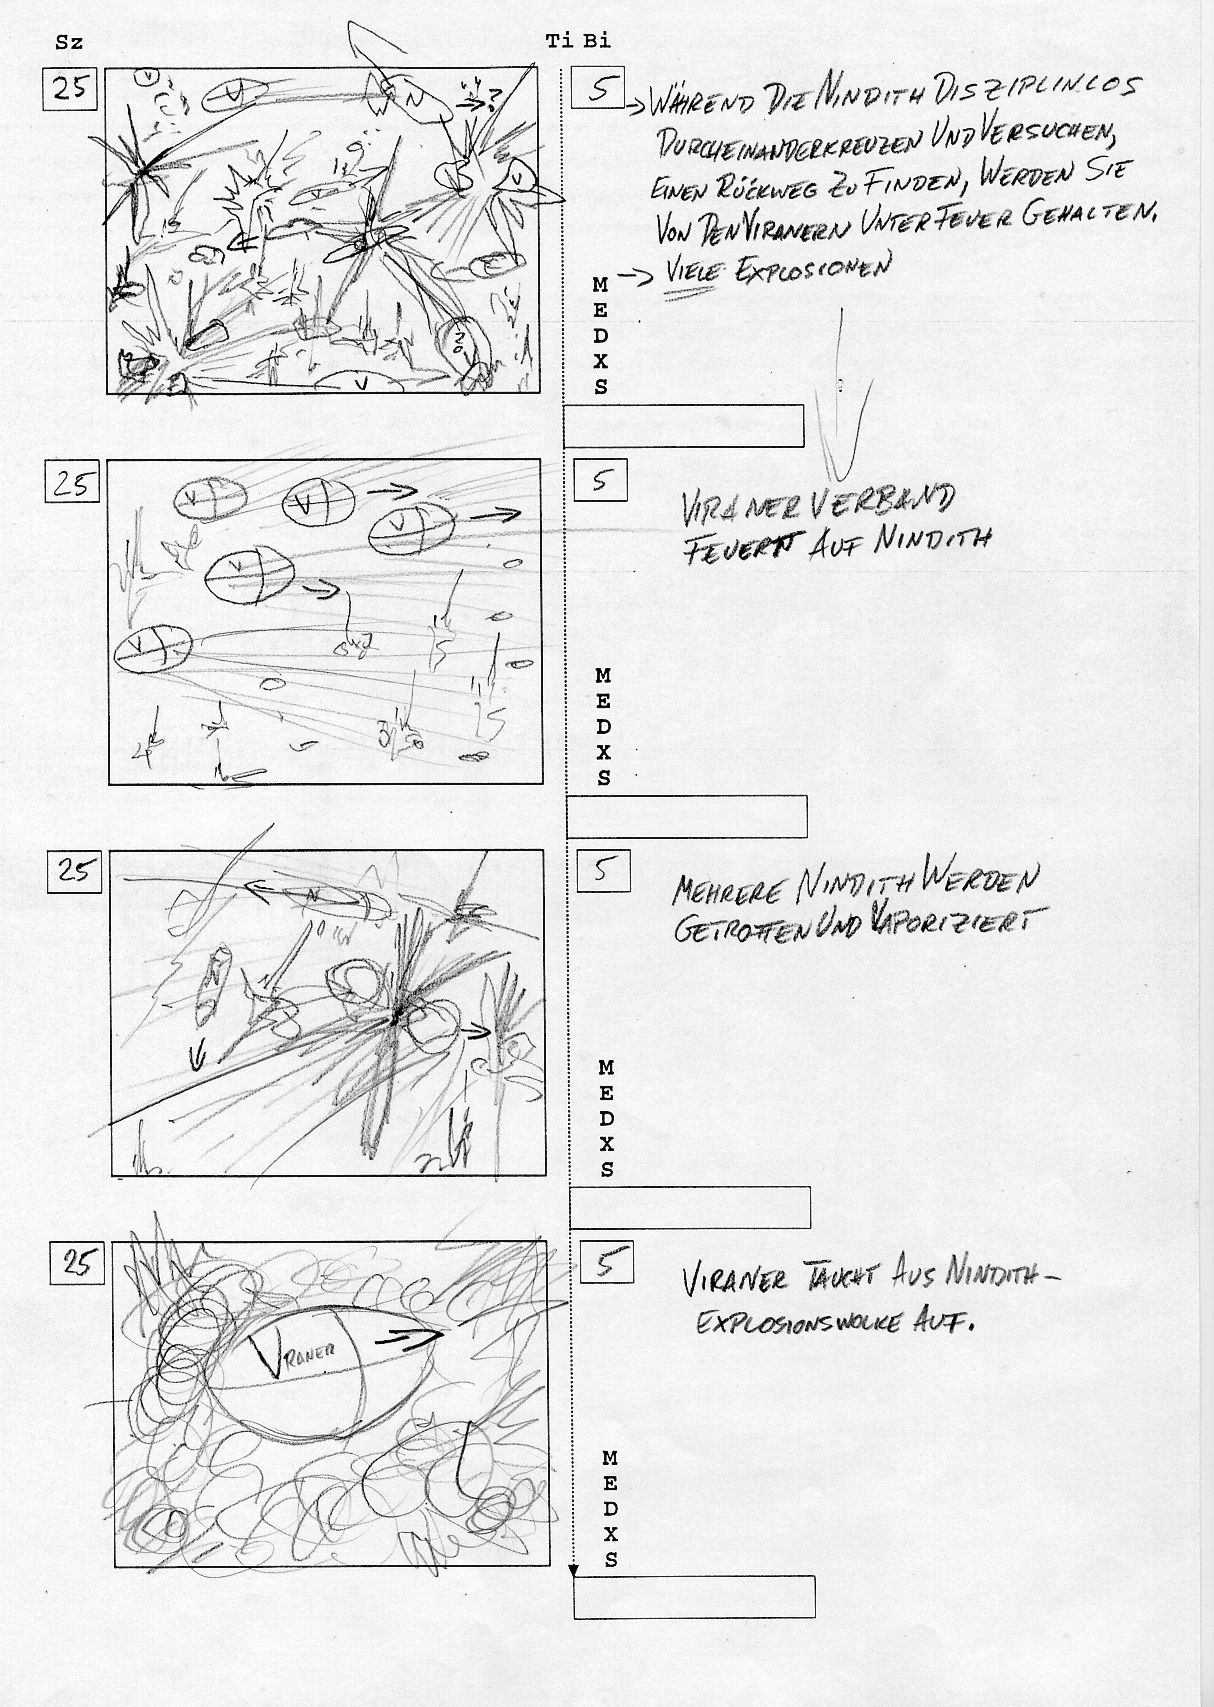 Sz Ti Bi
25
V
V
N
?
V
V
V
V
5
→ WÄHREND DIE NINDITH DISZIPLINLOS
DURCHEINANDERKREUZEN UND VERSUCHEN,
EINEN RÜCKWEG ZU FINDEN, WERDEN SIE
VON DEN VIRANERN UNTER FEUER GEHALTEN.
→ VIELE EXPLOSIONEN
M
E
D
X
S
25
V
V
V
V
V
5
VIRANER VERBAND
FEUERT AUF NINDITH
M
E
D
X
S
25
N
N
5
MEHRERE NINDITH WERDEN
GETROFFEN UND VAPORIZIERT
M
E
D
X
S
25
VIRANER
5
VIRANER TAUCHT AUS NINDITH-
EXPLOSIONSWOLKE AUF.
M
E
D
X
S